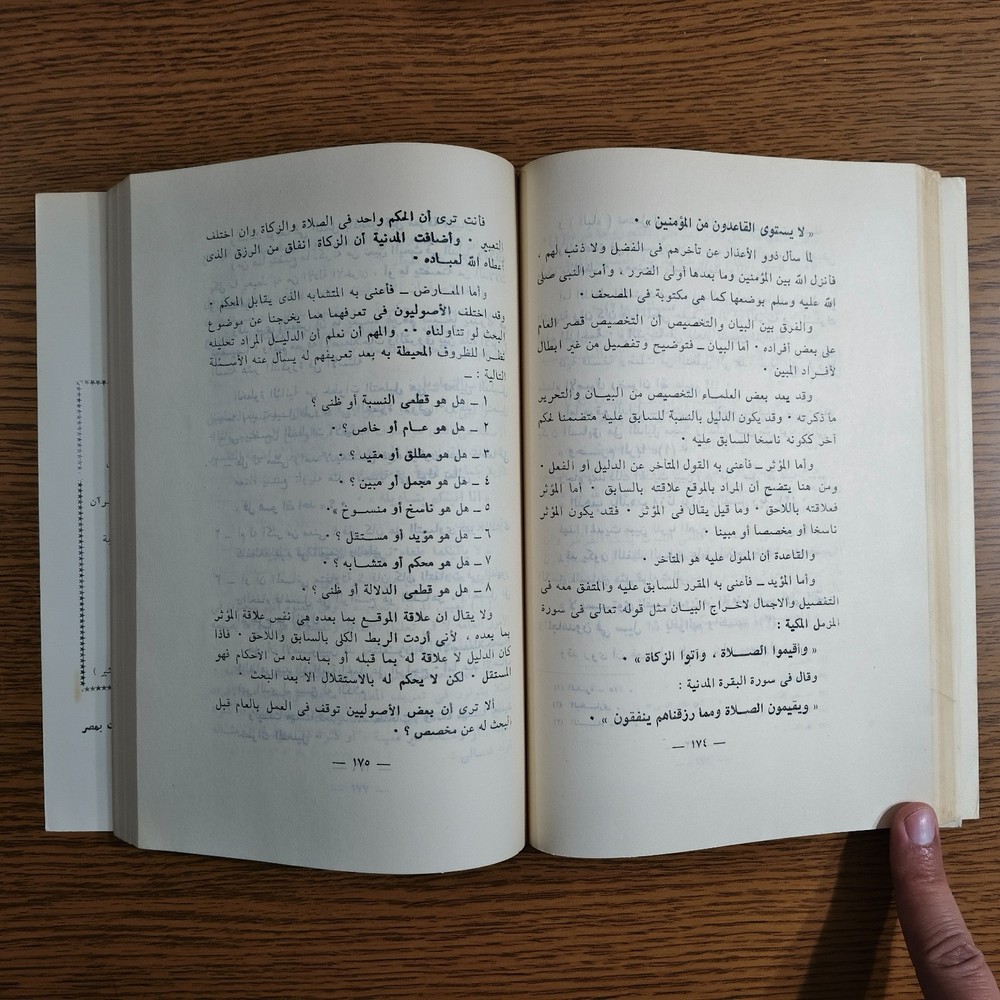 « لا يستوى القاعدون من المؤمنين » ٠
لما سأل ذوو الأعذار عن تأخرهم فى الفضل ولا ذنب لهم ،
فأنزل الله بين المؤمنين وما بعدها أولى الضرر ، وأمر النبى صلى
الله عليه وسلم بوضعها كما هى مكتوبة فى المصحف ٠
والفرق بين البيان والتخصيص أن التخصيص قصر العام
على بعض أفراده ٠ أما البيان ــ فتوضيح وتفصيل من غير ابطال
لأفراد المبين ٠
وقد يعد بعض العلماء التخصيص من البيان والتحرير
ما ذكرته ٠ وقد يكون الدليل بالنسبة للسابق عليه متضمنا لحكم
آخر ككونه ناسخا للسابق عليه ٠
وأما المؤثر ــ فأعنى به القول المتأخر عن الدليل أو الفعل ٠
ومن هنا يتضح أن المراد بالموقع علاقته بالسابق ٠ أما المؤثر
فعلاقته باللاحق ٠ وما قيل يقال فى المؤثر ٠ فقد يكون المؤثر
ناسخا أو مخصصا أو مبينا ٠
والقاعدة أن المعول عليه هو المتأخر ٠
وأما المؤيد ــ فأعنى به المقرر للسابق عليه والمتفق معه فى
التفصيل والاجمال لاخراج البيان مثل قوله تعالى فى سورة
المزمل المكية :
« وأقيموا الصلاة ، وآتوا الزكاة » ٠
وقال فى سورة البقرة المدنية :
« ويقيمون الصلاة ومما رزقناهم ينفقون » ٠
ــ ١٧٤ ــ
فأنت ترى أن الحكم واحد فى الصلاة والزكاة وان اختلف
التعبير ٠ وأضافت المدنية أن الزكاة انفاق من الرزق الذى
أعطاه الله لعباده ٠
وأما المعارض ــ فأعنى به المتشابه الذى يقابل المحكم ٠
وقد اختلف الأصوليون فى تعرفهما مما يخرجنا عن موضوع
البحث لو تناولناه ٠٠ والمهم أن نعلم أن الدليل المراد تحليله
نظرا للظروف المحيطة به بعد تعريفهم له يسأل عنه الأسئلة
التالية : ــ
١ ــ هل هو قطعى النسبة أو ظنى ؟
٢ ــ هل هو عام أو خاص ؟ ٠
٣ ــ هل هو مطلق أو مقيد ؟ ٠
٤ ــ هل هو مجمل أو مبين ؟ ٠
٥ ــ هل هو ناسخ أو منسوخ ؟ ٠
٦ ــ هل هو مؤيد أو مستقل ؟ ٠
٧ ــ هل هو محكم أو متشابه ؟ ٠
٨ ــ هل هو قطعى الدلالة أو ظنى ؟ ٠
ولا يقال ان علاقة الموقع بما بعده هى نفس علاقة المؤثر
بما بعده ، لأنى أردت الربط الكلى بالسابق واللاحق ٠ فاذا
كان الدليل لا علاقة له بما قبله أو بما بعده من الأحكام فهو
المستقل ٠ لكن لا يحكم له بالاستقلال الا بعد البحث ٠
ألا ترى أن بعض الأصوليين توقف فى العمل بالعام قبل
البحث له عن مخصص ؟ ٠
ــ ١٧٥ ــ
بمصر